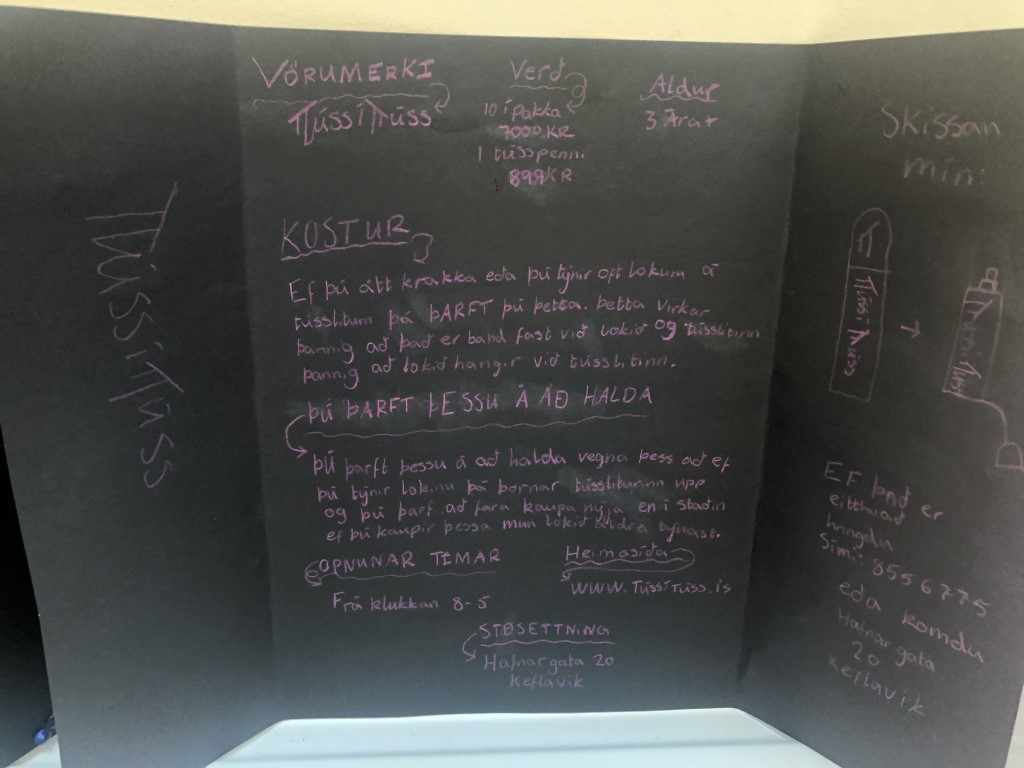 TússíTúss
VÖRUMERKI
TússíTúss
Verð
10 í pakka
7000 KR
1 tússpenn.
899KR
Aldur
3 Ára +
KOSTUR
Ef þú átt krakka eða þú týnir oft lokum á
tússlitum þá ÞARFT þú þetta. Þetta virkar
þannig að það er band fast við lokið og tússlitinn
þannig að lokið hangir við tússlitinn.
ÞÚ ÞARFT ÞESSU Á AÐ HALDA
Þú þarft þessu á að halda vegna þess að ef
þú týnir lokinu þá þornar tússliturinn upp
og þú þarf að fara kaupa nýja en í staðin
ef þú kaupir þessa mun lokið aldrei týnast.
OPNUNAR TEMAR
Frá klukkan 8-5
Heimasíða
www.TússíTúss.is
STÐSETTNING
Hafnargata 20
Keflavik
Skissan
min:
TússíTúss
TússíTúss
Ef það er
eitthvað
hringdu
Sími: 8556775
eða komdu
Hafnargata
20
Keflavik